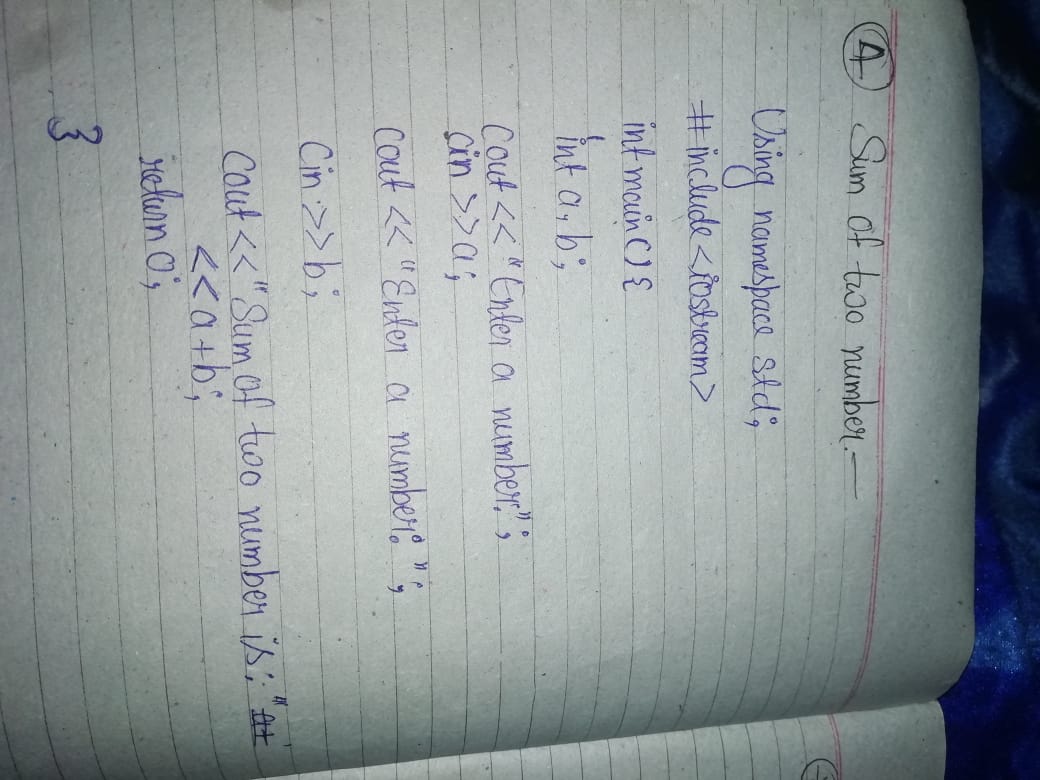 ④ Sum of two number.—
Using namespace std;
#include<iostream>
int main(){
int a,b;
Cout<<"Enter a number:";
Cin>>a;
Cout<<"Enter a number:";
Cin>>b;
Cout<<"Sum of two number is:"
<<a+b;
return 0;
}